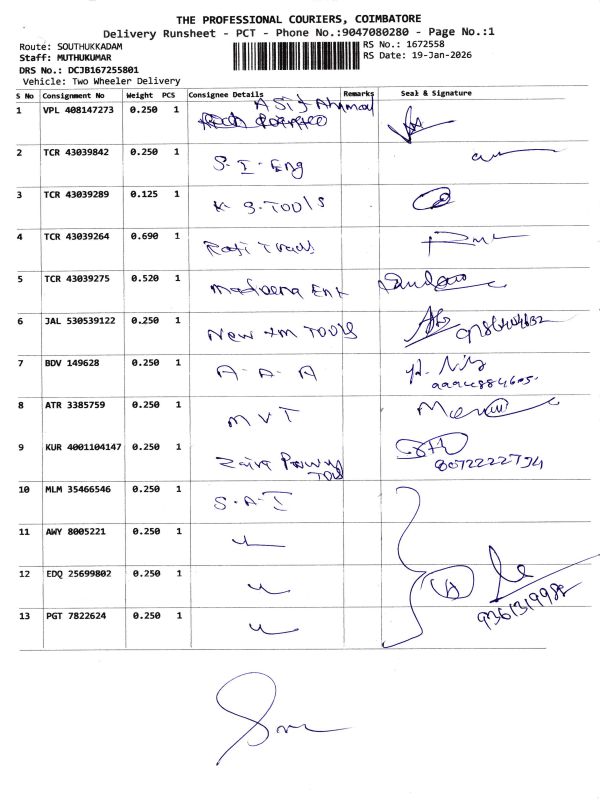 THE PROFESSIONAL COURIERS, COIMBATORE
Delivery Runsheet - PCT - Phone No.:9047080280 - Page No.:1
Route: SOUTHUKKADAM
RS No.: 1672558
Staff: MUTHUKUMAR
RS Date: 19-Jan-2026
DRS No.: DCJB167255801
Vehicle: Two Wheeler Delivery
S No Consignment No Weight PCS Consignee Details Remarks Seal & Signature
1 VPL 408147273 0.250 1 Asif Ahamad
2 TCR 43039842 0.250 1 S. I. Eng
3 TCR 43039289 0.125 1 K S. TOOLS
4 TCR 43039264 0.690 1
5 TCR 43039275 0.520 1 Ent
6 JAL 530539122 0.250 1 New TOOLS
7 BDV 149628 0.250 1 A. A. A
8 ATR 3385759 0.250 1 MVT
9 KUR 4001104147 0.250 1
10 MLM 35466546 0.250 1 S. A. I
11 AWY 8005221 0.250 1
12 EDQ 25699802 0.250 1
13 PGT 7822624 0.250 1